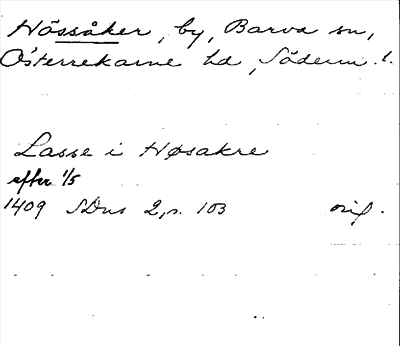 Hössåker, by, Barva sn,
Österrekarne hd, Söderm. l.
Lasse i Høsakre
efter 1/5
1409 SDns 2, s. 103 orig.